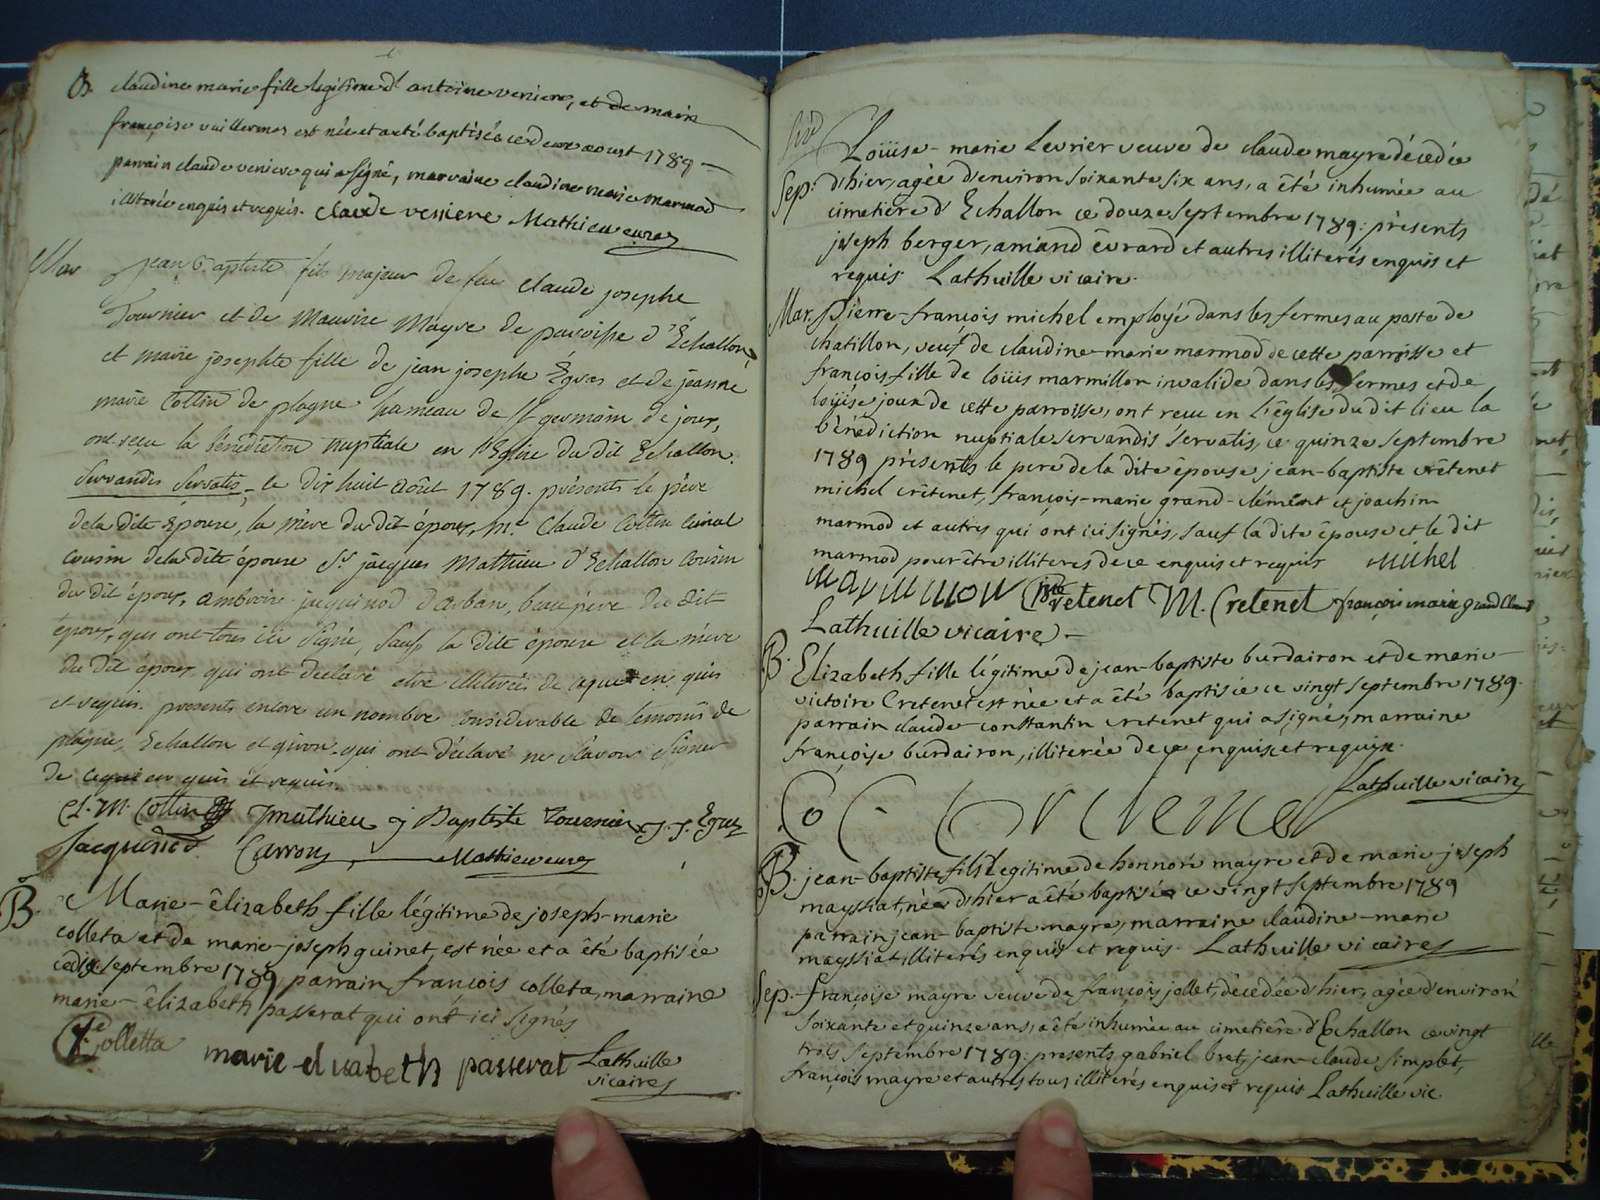 B. claudine marie fille legitime d' antoine veniere, et de marie
françoise vuillermoz est née et a eté baptisée ce deux aoust 1789
parrain claude veniere qui a signé, marraine claudine marie marmod
illiterée enquis et requis. claude veniere Mathieu curé
Mar jean Baptiste fils majeur de feu claude josephe
Tournier et de Maurise Mayre de paroisse d'Échallon
et marie josephte fille de jean josephe Éguez et de jeanne
marie Collin de plagne hameau de St germain de joux,
ont reçu la bénédiction nuptiale en l'Eglise du dit Echallon.
Servandis Servatis, le dix huit août 1789. présents le père
dela dite épouse, la mère du dit époux, Mr. Claude Collin
cousin dela dite épouse Sr jacques Mathieu d'Echallon cousin
du dit époux, ambroise jacquinod d'arban, beau père du dit
époux, qui ont tous ici signé, sauf la dite épouse et la mère
du dit époux qui ont déclaré etre illiterées de ce enquis
et requis. presents encore un nombre considerable de temoins de
plagne, Echallon et giron qui ont déclaré ne sçavoir signer
de ce enquis et requis
Cl. M. Collin Jmathieu j Baptiste Tournier J. J. Eguez
Jacquinod Carron Mathieu curé
B. Marie-êlizabeth fille légitime de joseph-marie
colleta et de marie-joseph guinet, est née et a êté baptisée
ce dix septembre 1789 parrain françois colleta, marraine
marie-êlizabeth passerat qui ont ici signés
f. Colletta marie elisabeth passerat Lathuille
vicaire
Loüise-marie Levrier veuve de claude mayre décedée
Sep. d'hier, agée d'environ soixante six ans, a êté inhumée au
cimetiere d'Echallon ce douze septembre 1789: présents
joseph berger, amand êvrard et autres illiterés enquis et
requis Lathuille vicaire.
Mar. Pierre-françois michel employé dans les fermes au poste de
chatillon, veuf de claudine-marie marmod de cette parroisse et
françois fille de loüis marmillon invalide dans les fermes et de
loüise joux de cette parroisse, ont recu en l'église du dit lieu la
bénédiction nuptiale servandis servatis, ce quinze septembre
1789 présents le pere de la dite êpouse jean-baptiste crêtenet
michel crêtenet, françois-marie grand-clément et joachim
marmod et autres qui ont ici signés, sauf la dite êpouse et le dit
marmod pour être illiteres de ce enquis et requis Michel
marmillon jbte cretenet M. Cretenet françois marie grand Clement
Lathuille vicaire
B. Elizabeth fille légitime de jean-baptiste burdairon et de marie-
victoire Cretenet est née et a êté baptisée ce vingt septembre 1789.
parrain claude-constantin cretenet qui a signé, marraine
françoise burdairon, illiterée de ce enquise et requise.
Lathuille vicaire
C C Cretenet
B. jean-baptiste fils Legitime de honnoré mayre et de marie-joseph
mayssiat, née d'hier a êté baptisé ce vingt septembre 1789
parrain jean-baptiste mayre, marraine claudine-marie
mayssiat illiterés enquis et requis. Lathuille vicaire
Sep. françoise mayre veuve de françois jollet, décedée d'hier, agée d'environ
soixante et quinze ans, a êté inhumée au cimetiêre d'Echallon ce vingt
trois septembre 1789: presents gabriel bret, jean-claude simplet,
françois mayre et autres tous illiterés enquis et requis Lathuille vic.